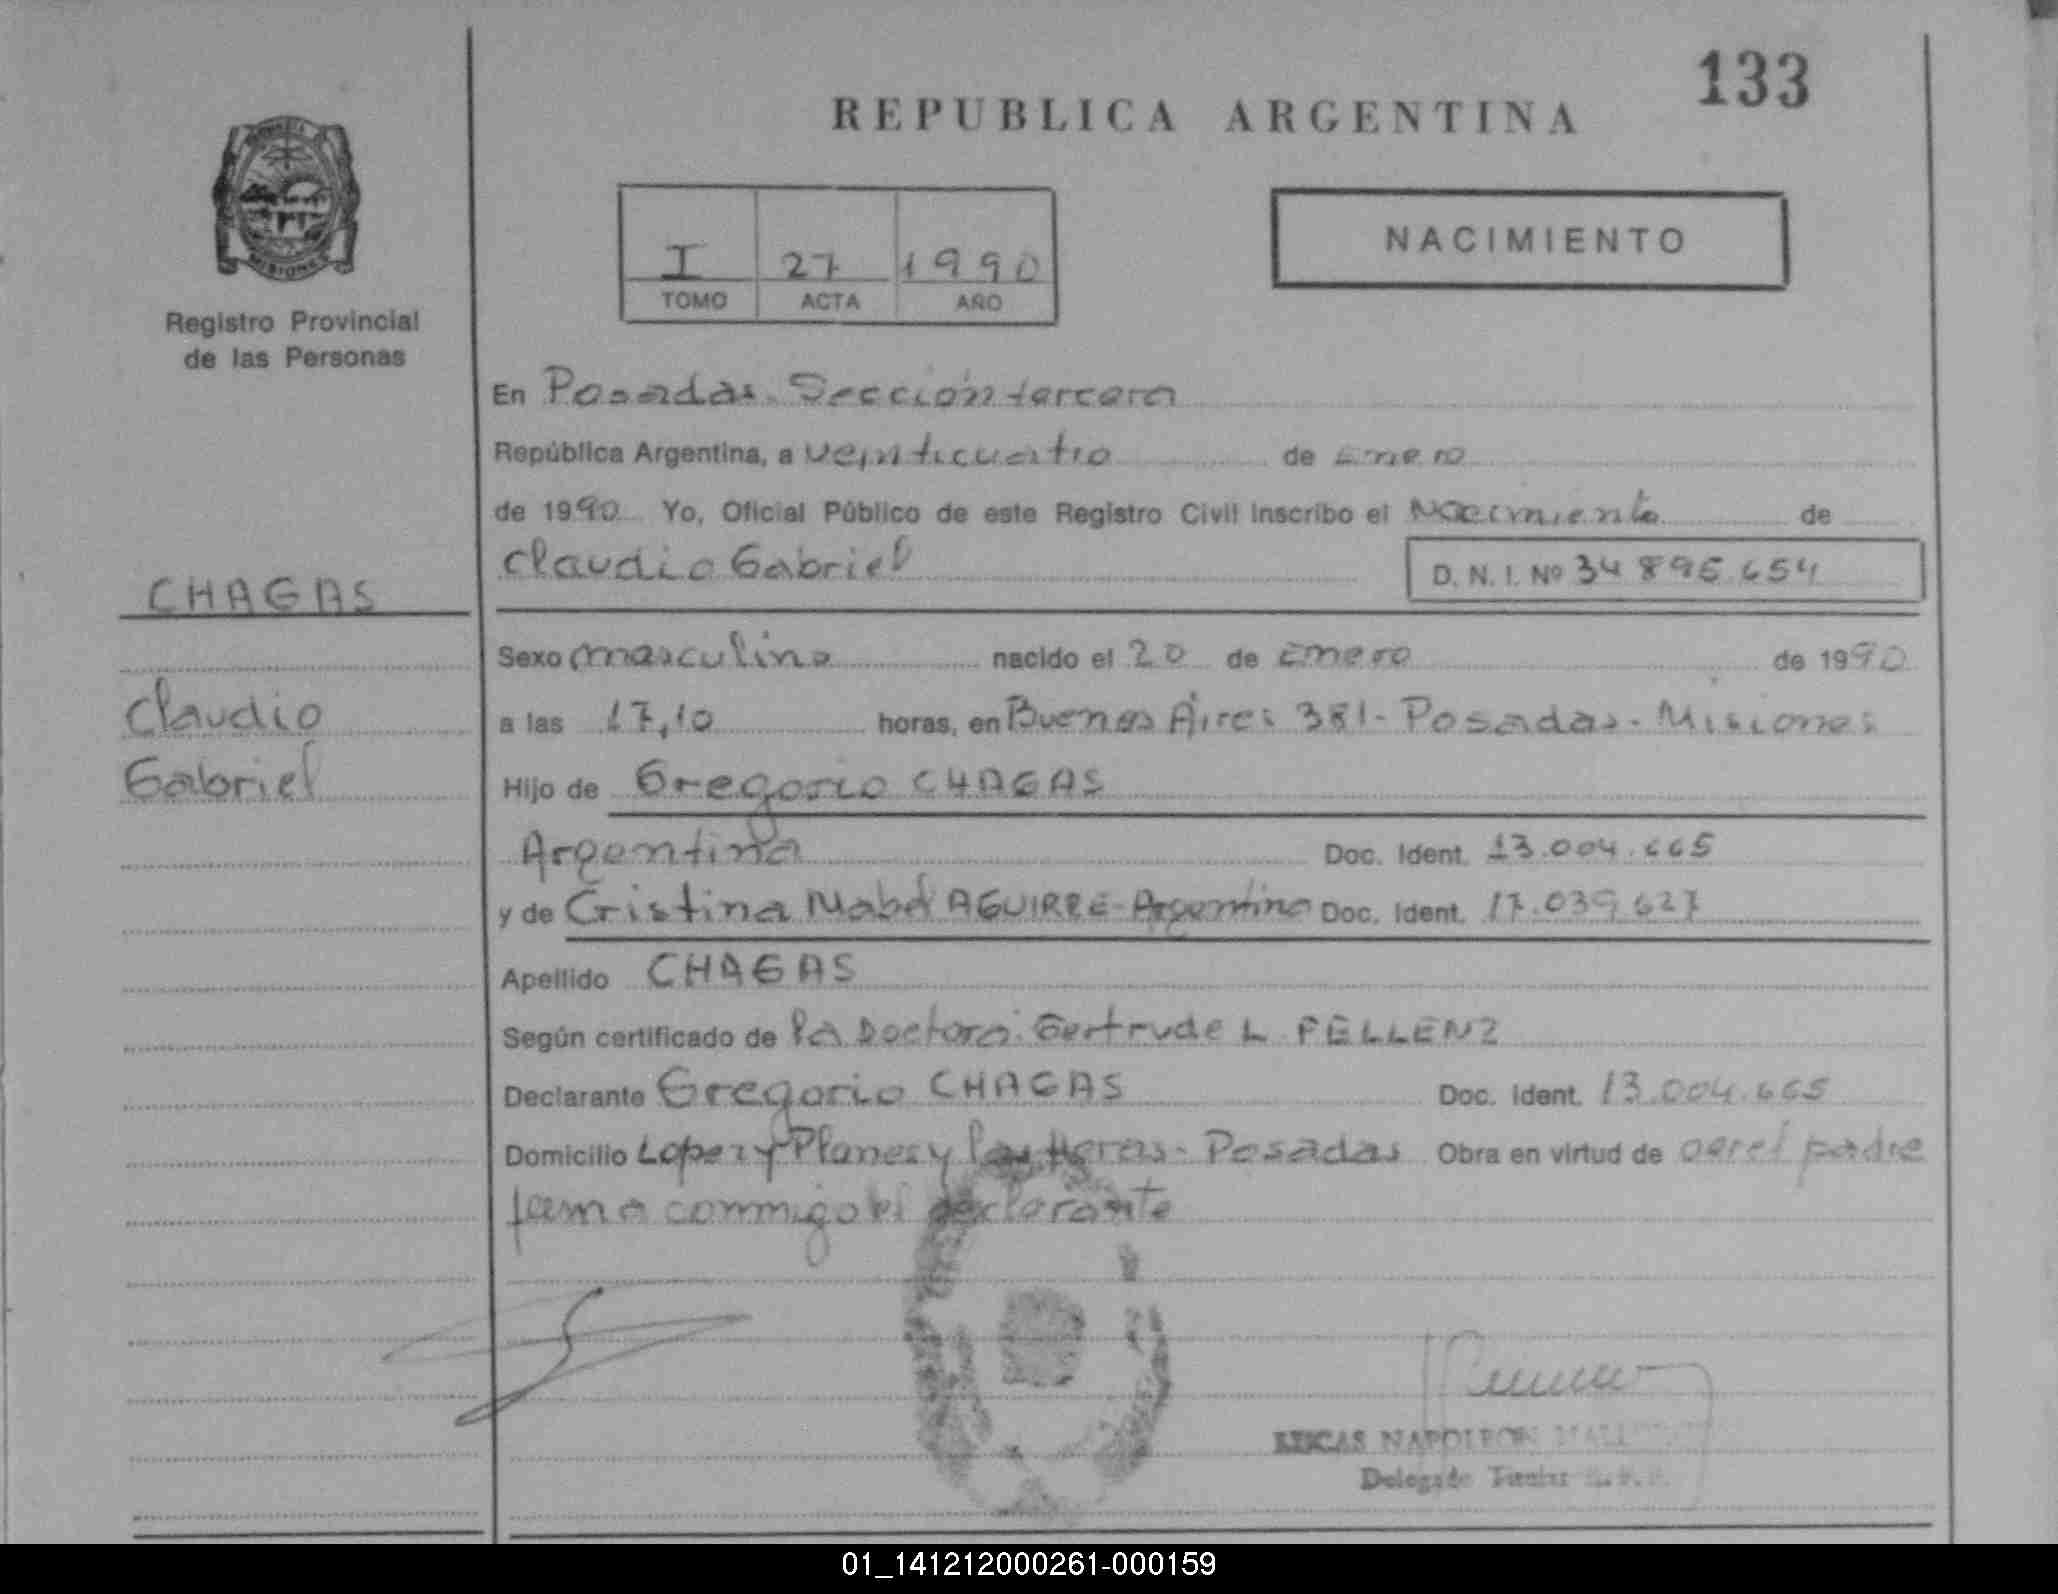 133
REPUBLICA ARGENTINA
MISIONES
Registro Provincial
de las Personas
I 27 1990
TOMO ACTA AÑO
NACIMIENTO
En Posadas. Sección tercera
República Argentina, a veinticuatro de Enero
de 1990 Yo, Oficial Público de este Registro Civil inscribo el Nacimiento de
Claudio Gabriel D. N. I. Nº 34 896.654
CHAGAS
Claudio
Gabriel
Sexo masculino nacido el 20 de Enero de 1990
a las 17,10 horas, en Buenos Aires 381 - Posadas - Misiones
Hijo de Gregorio CHAGAS
Argentina Doc. Ident. 13.004.665
y de Cristina Mabel AGUIRRE - Argentina Doc. Ident. 17.039.627
Apellido CHAGAS
Según certificado de la Doctora Gertrude L. FELLENZ
Declarante Gregorio CHAGAS Doc. Ident. 13.004.665
Domicilio Lopez y Planes y las Heras - Posadas Obra en virtud de ser el padre
firma conmigo el declarante
LUCAS NAPOLEON
Delegado Titular
01_141212000261-000159